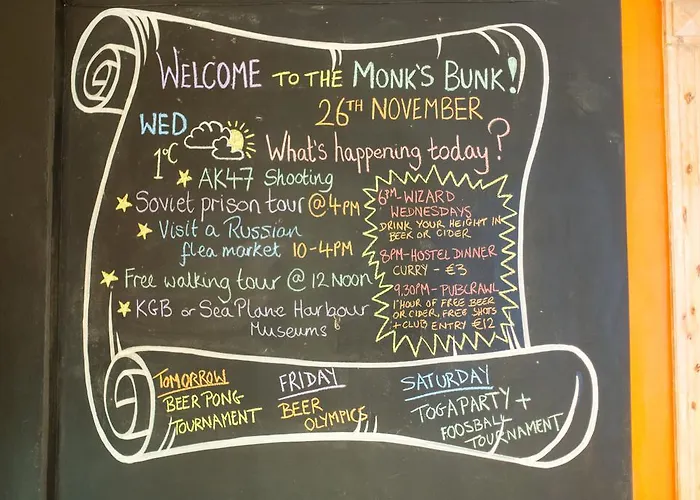 WELCOME TO THE MONK'S BUNK!
26TH NOVEMBER
WED
1°C
What's happening today?
AK47 Shooting
Soviet prison tour @ 4PM
Visit a Russian
flea market 10-4PM
Free walking tour @ 12 Noon
KGB or Sea Plane Harbour
Museums
6PM-WIZARD
WEDNESDAYS
DRINK YOUR HEIGHT IN
BEER OR CIDER
8PM-HOSTEL DINNER
CURRY - €3
9.30PM-PUBCRAWL
1 HOUR OF FREE BEER
OR CIDER, FREE SHOTS
+ CLUB ENTRY €12
TOMORROW
BEER PONG
TOURNAMENT
FRIDAY
BEER
OLYMPICS
SATURDAY
TOGAPARTY +
FOOSBALL
TOURNAMENT